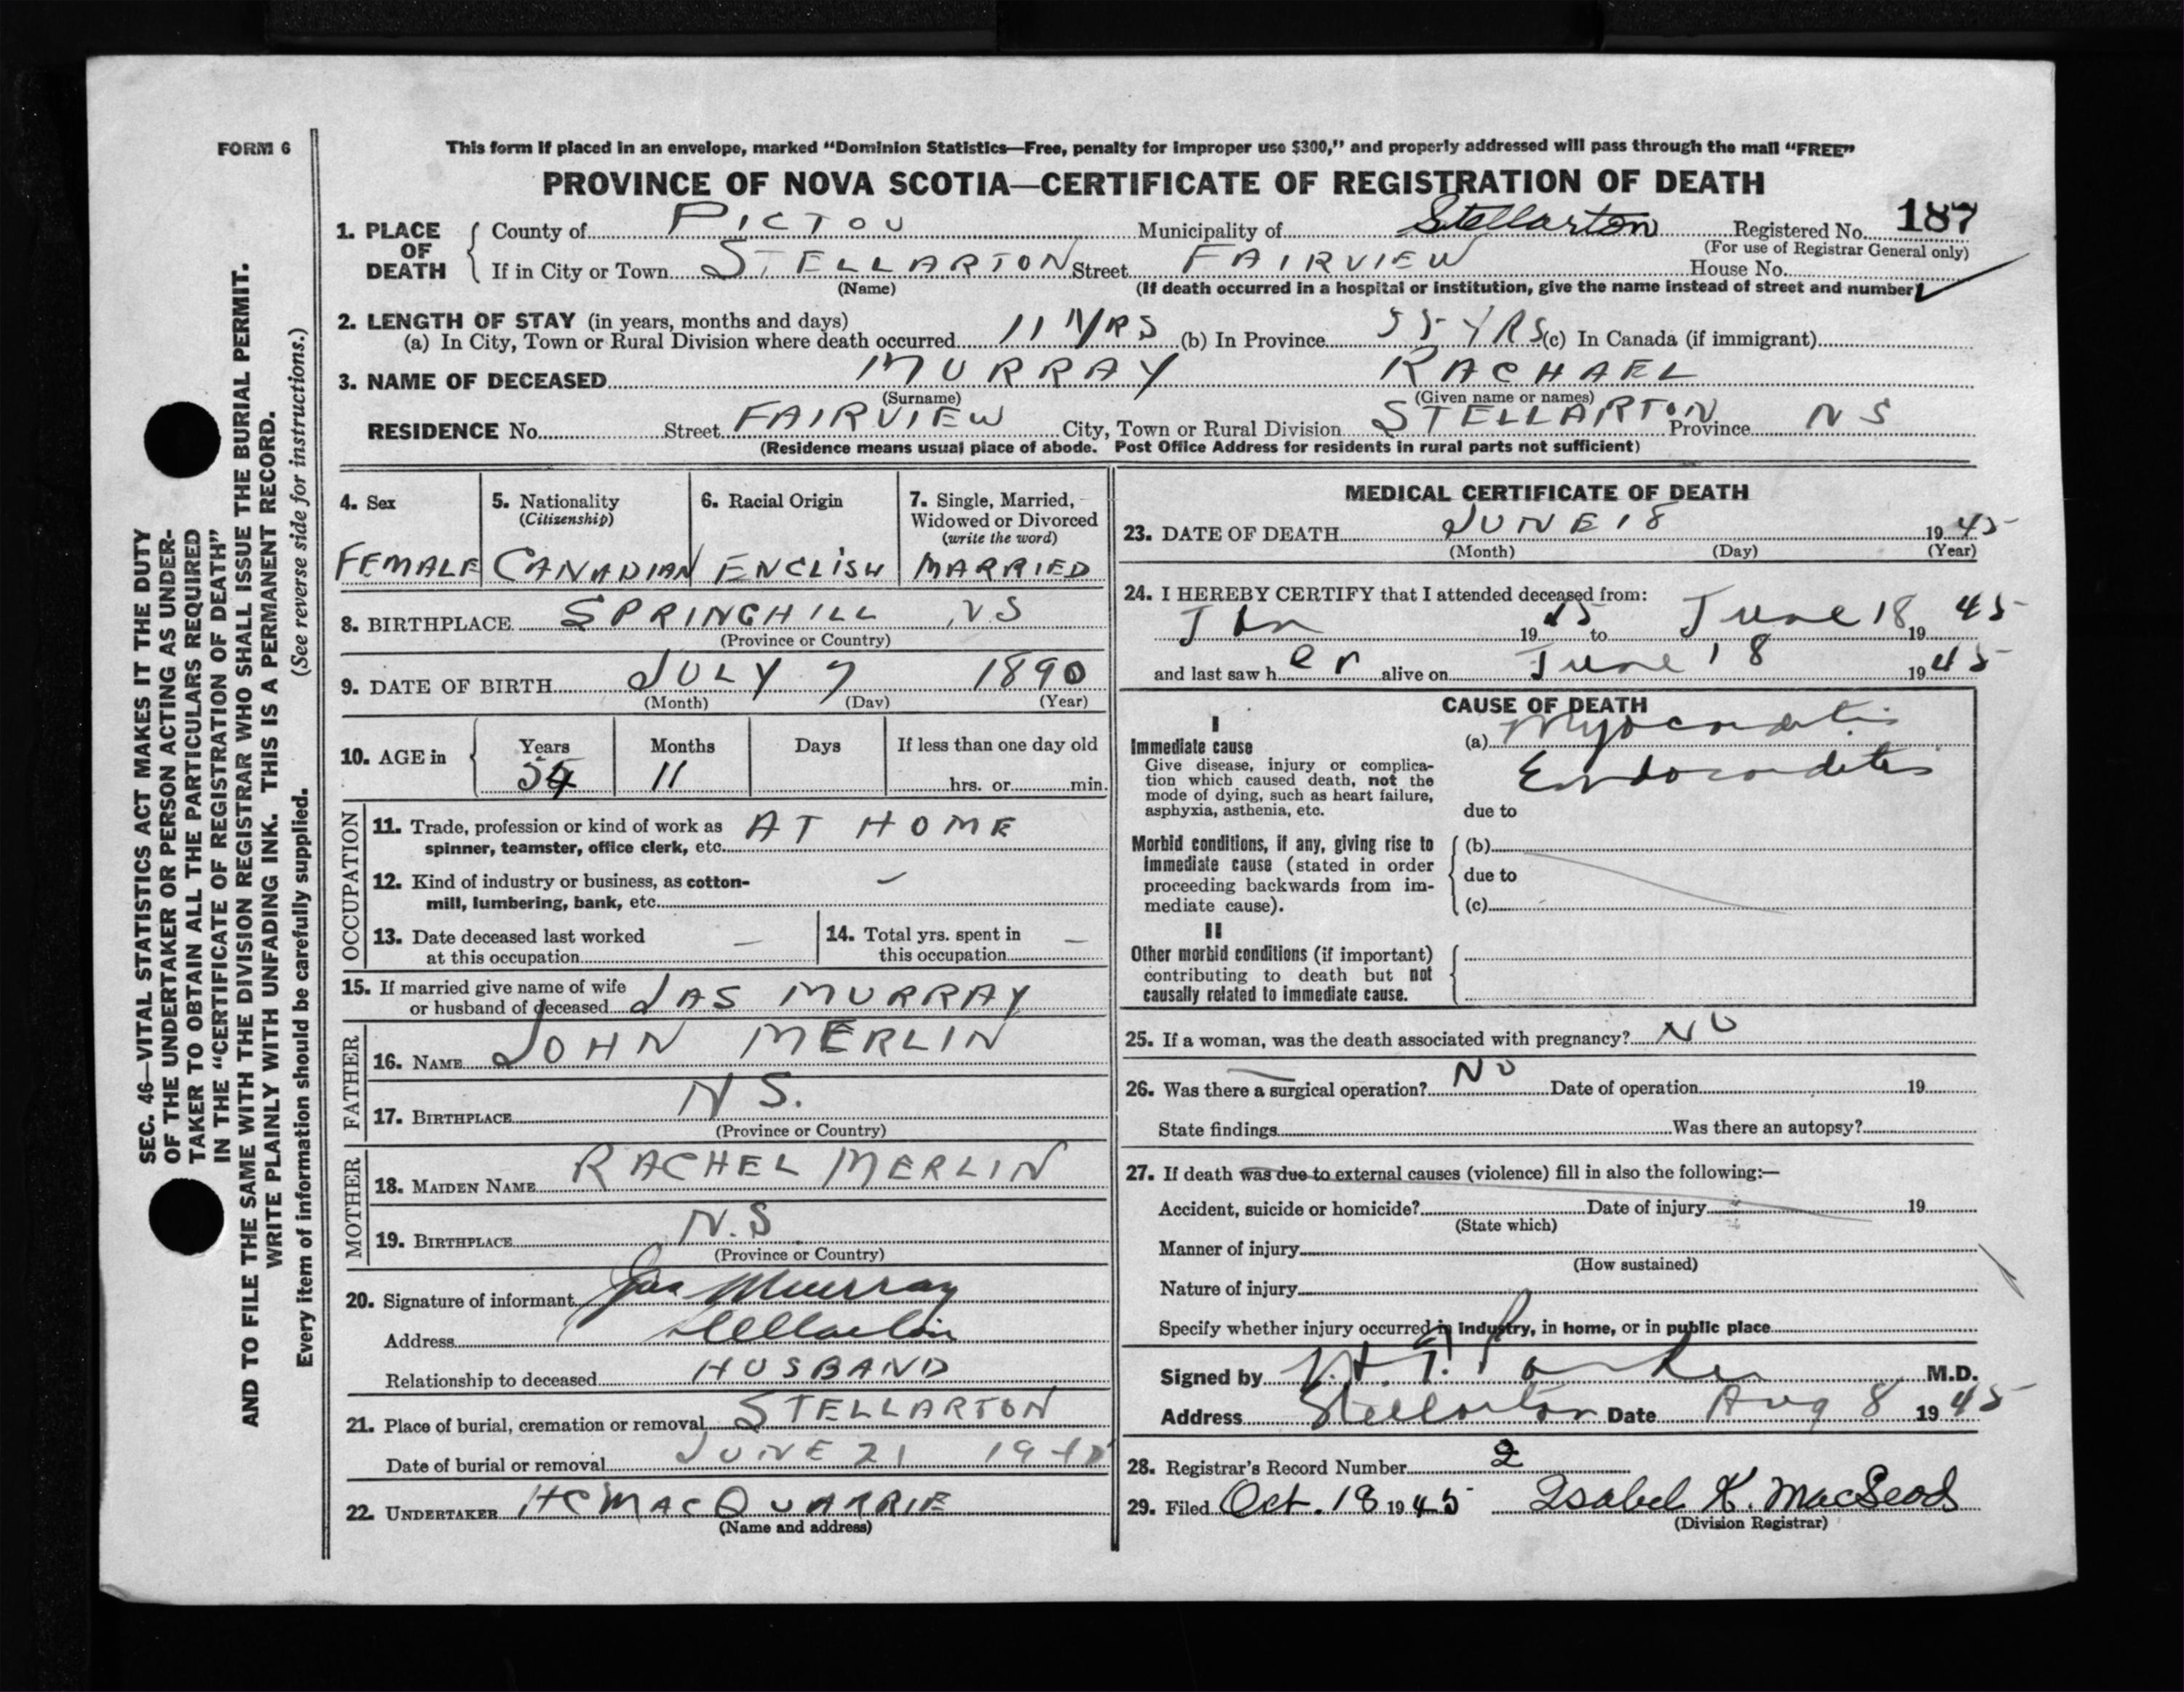 FORM 6
This form if placed in an envelope, marked “Dominion Statistics—Free, penalty for improper use $300,” and properly addressed will pass through the mail “FREE”
PROVINCE OF NOVA SCOTIA—CERTIFICATE OF REGISTRATION OF DEATH
1. PLACE OF DEATH
County of PICTOU Municipality of Stellarton Registered No. 187
(For use of Registrar General only)
If in City or Town STELLARTON Street FAIRVIEW House No.
(Name) (If death occurred in a hospital or institution, give the name instead of street and number)
2. LENGTH OF STAY (in years, months and days)
(a) In City, Town or Rural Division where death occurred 11 YRS (b) In Province 55 YRS (c) In Canada (if immigrant)
3. NAME OF DECEASED MURRAY RACHAEL
(Surname) (Given name or names)
RESIDENCE No. Street FAIRVIEW City, Town or Rural Division STELLARTON Province NS
(Residence means usual place of abode. Post Office Address for residents in rural parts not sufficient)
4. Sex
FEMALE
5. Nationality
(Citizenship)
CANADIAN
6. Racial Origin
ENGLISH
7. Single, Married,
Widowed or Divorced
(write the word)
MARRIED
8. BIRTHPLACE SPRINGHILL NS
(Province or Country)
9. DATE OF BIRTH JULY 7 1890
(Month) (Day) (Year)
10. AGE in
Years Months Days If less than one day old
54 11 hrs. or min.
OCCUPATION
11. Trade, profession or kind of work as
spinner, teamster, office clerk, etc. AT HOME
12. Kind of industry or business, as cotton-
mill, lumbering, bank, etc. —
13. Date deceased last worked
at this occupation —
14. Total yrs. spent in
this occupation —
15. If married give name of wife
or husband of deceased JAS MURRAY
FATHER
16. NAME JOHN MERLIN
17. BIRTHPLACE N S.
(Province or Country)
MOTHER
18. MAIDEN NAME RACHEL MERLIN
19. BIRTHPLACE N.S
(Province or Country)
20. Signature of informant Jas Murray
Address Stellarton
Relationship to deceased HUSBAND
21. Place of burial, cremation or removal STELLARTON
Date of burial or removal JUNE 21 1945
22. UNDERTAKER HC MACQUARRIE
(Name and address)
MEDICAL CERTIFICATE OF DEATH
23. DATE OF DEATH JUNE 18 1945
(Month) (Day) (Year)
24. I HEREBY CERTIFY that I attended deceased from:
Jan 1945 to June 18 1945
and last saw her alive on June 18 1945
CAUSE OF DEATH
I
Immediate cause
Give disease, injury or complica-
tion which caused death, not the
mode of dying, such as heart failure,
asphyxia, asthenia, etc.
(a) Myocarditis
Endocarditis
due to
Morbid conditions, if any, giving rise to
immediate cause (stated in order
proceeding backwards from im-
mediate cause).
(b)
due to
(c)
II
Other morbid conditions (if important)
contributing to death but not
causally related to immediate cause.
25. If a woman, was the death associated with pregnancy? NO
26. Was there a surgical operation? NO Date of operation 19
State findings Was there an autopsy?
27. If death was due to external causes (violence) fill in also the following:—
Accident, suicide or homicide? Date of injury 19
(State which)
Manner of injury
(How sustained)
Nature of injury
Specify whether injury occurred in industry, in home, or in public place
Signed by Parker M.D.
Address Stellarton Date Aug 8 1945
28. Registrar's Record Number 2
29. Filed Oct. 18 1945 Isabel K. MacLeod
(Division Registrar)
SEC. 46—VITAL STATISTICS ACT MAKES IT THE DUTY
OF THE UNDERTAKER OR PERSON ACTING AS UNDER-
TAKER TO OBTAIN ALL THE PARTICULARS REQUIRED
IN THE “CERTIFICATE OF REGISTRATION OF DEATH”
AND TO FILE THE SAME WITH THE DIVISION REGISTRAR WHO SHALL ISSUE THE BURIAL PERMIT.
WRITE PLAINLY WITH UNFADING INK. THIS IS A PERMANENT RECORD.
Every item of information should be carefully supplied. (See reverse side for instructions.)